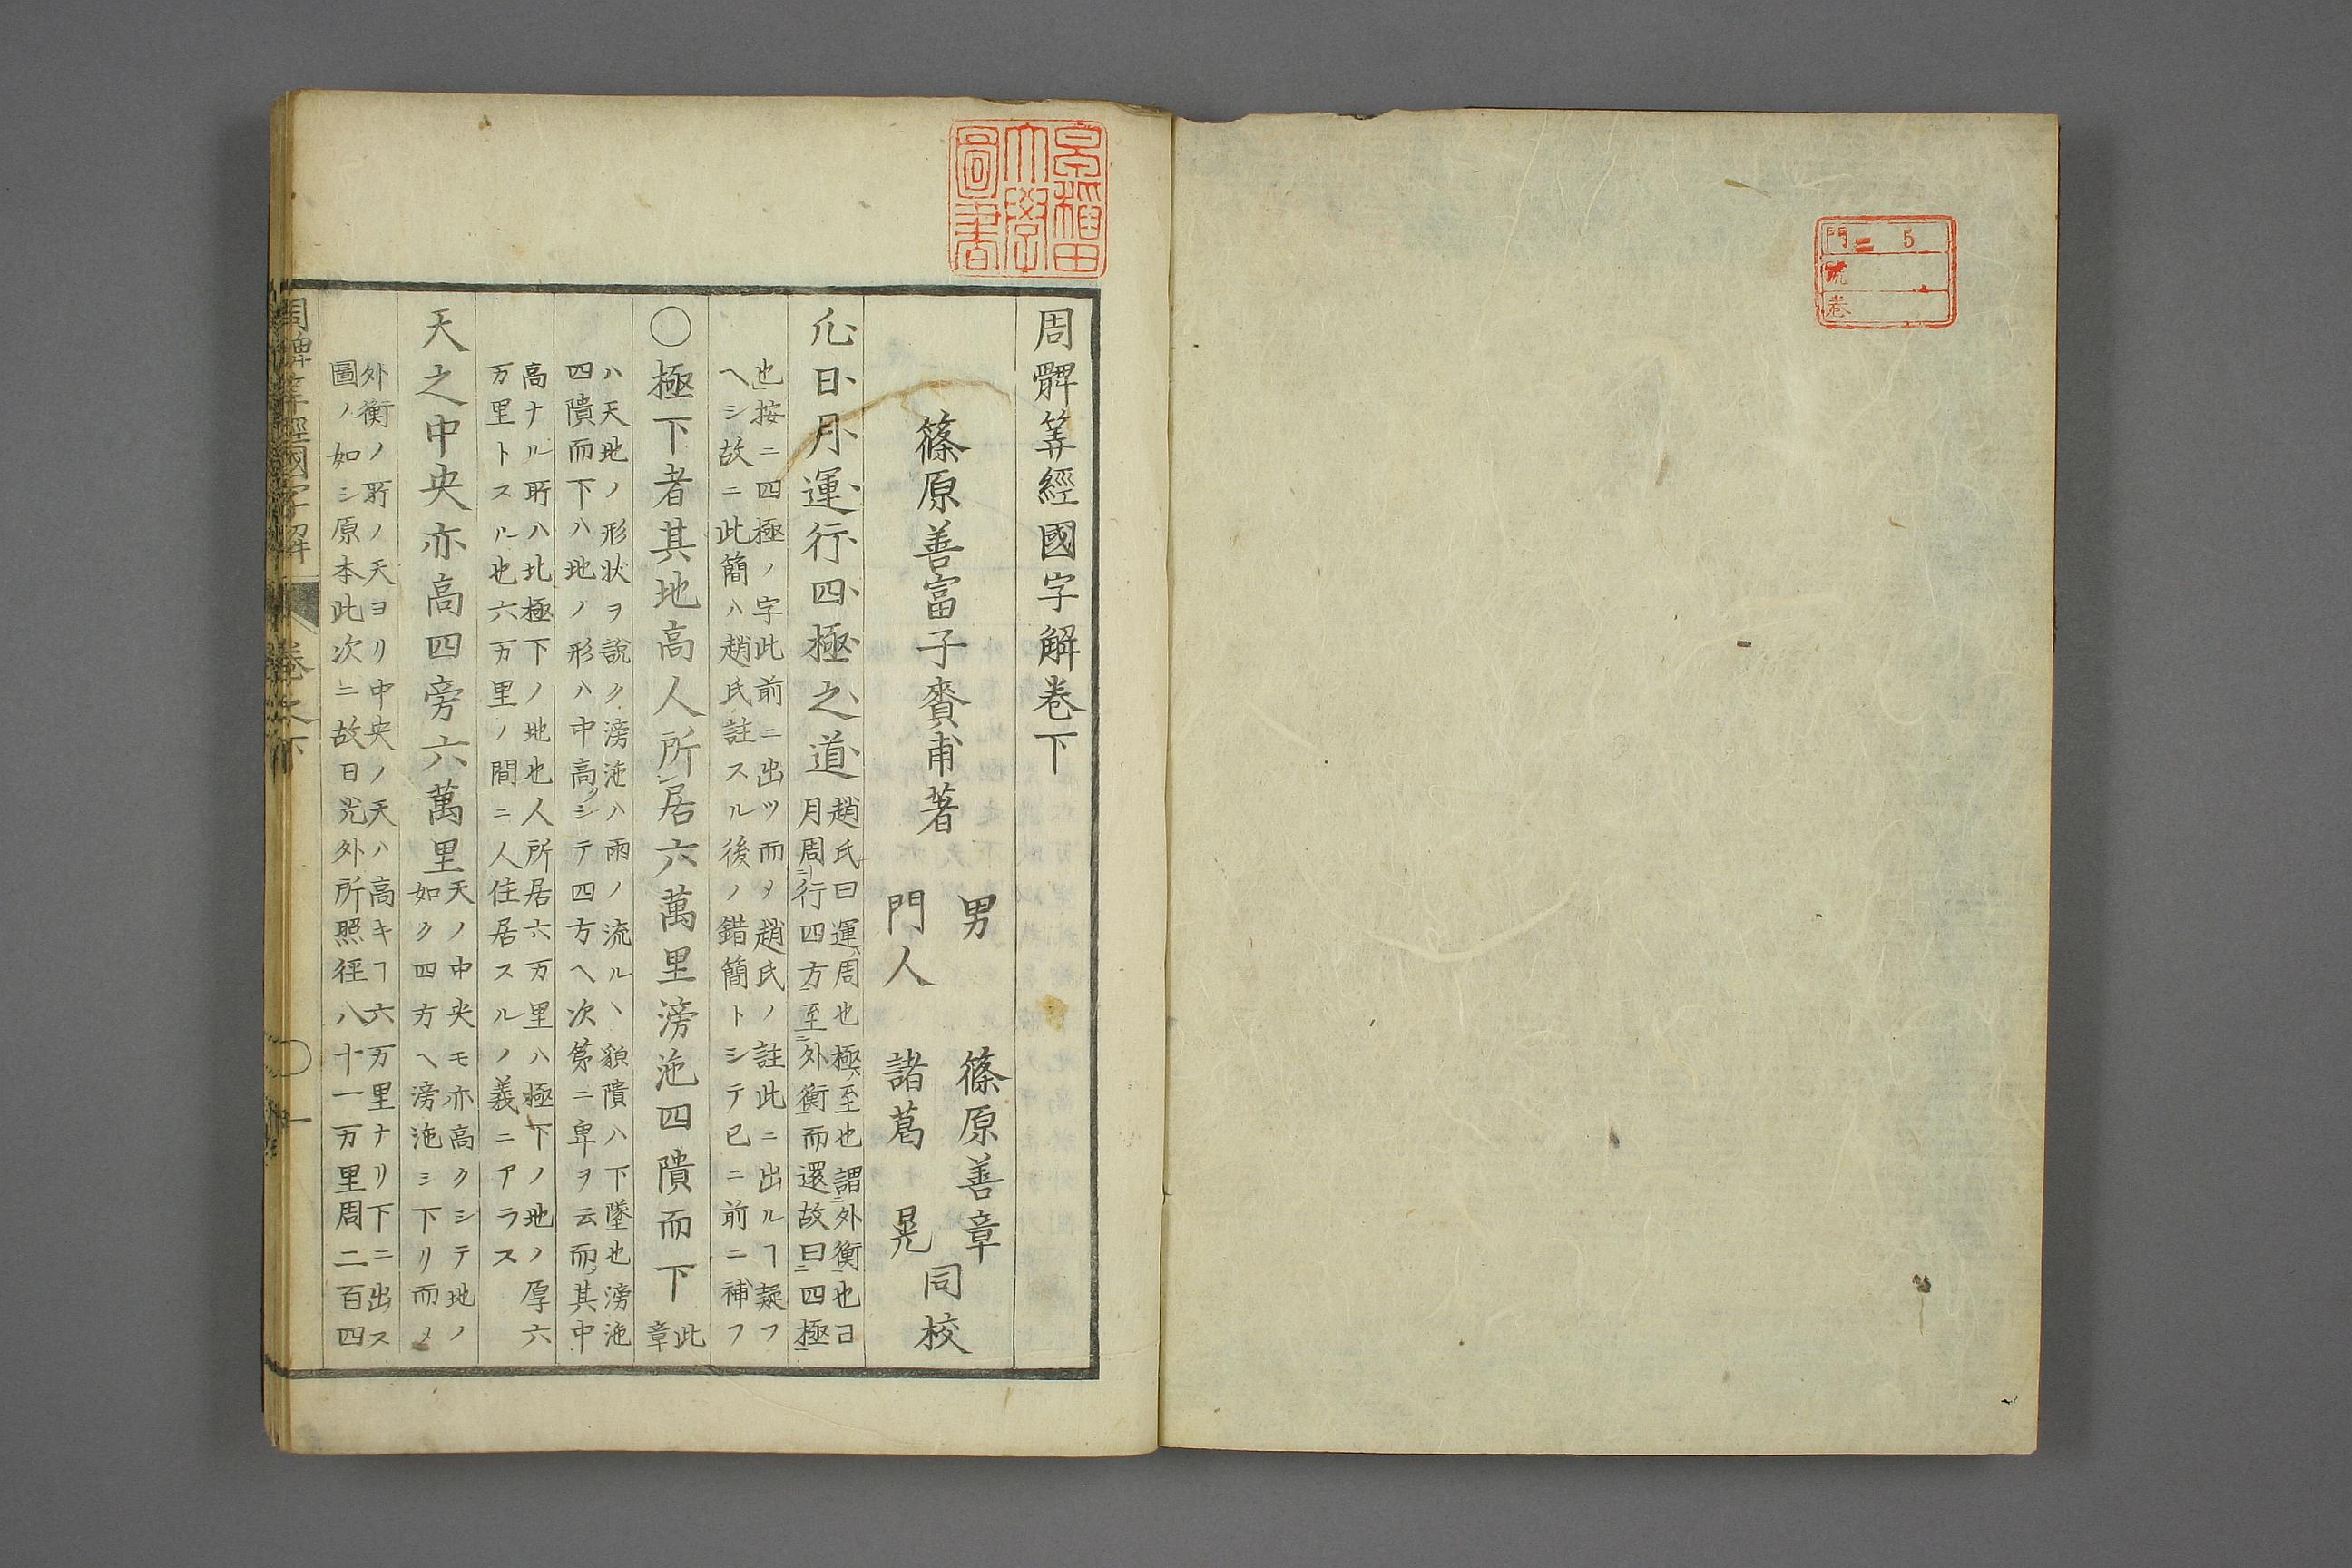 門 二 5
號
卷
早稻田大學圖書
周髀筭經國字解卷下
篠原善富子賚甫著
男 篠原善章
門人 諸葛 晃
同校
凡日月運行四極之道
趙氏曰運ハ周也極ハ至也謂二外衡一也日
月周ニ行四方一至二外衡一而還故曰二四極一
也按ニ四極ノ字此前ニ出ツ而メ趙氏ノ註此ニ出ルヿ疑フ
ヘシ故ニ此簡ハ趙氏註スル後ノ錯簡トシテ已ニ前ニ補フ
〇極下者其地高人所居六萬里滂沲四隤而下
此
章
ハ天地ノ形状ヲ說ク滂沲ハ雨ノ流ルヽ貌隤ハ下墜也滂沲
四隤而下ハ地ノ形ハ中高ッシテ四方ヘ次第ニ卑ヲ云而其中
高ナル所ハ北極下ノ地也人所居六万里ハ極下ノ地ノ厚六
万里トスル也六万里ノ間ニ人住居スルノ義ニアラス
天之中央亦高四旁六萬里
天ノ中央モ亦高クシテ地ノ
如ク四方ヘ滂沲シ下リ而メ
外衡ノ所ノ天ヨリ中央ノ天ハ高キヿ六万里ナリ下ニ出ス
圖ノ如シ原本此次ニ故日光外所照徑八十一万里周二百四
周髀筭經國字解 卷之下 一